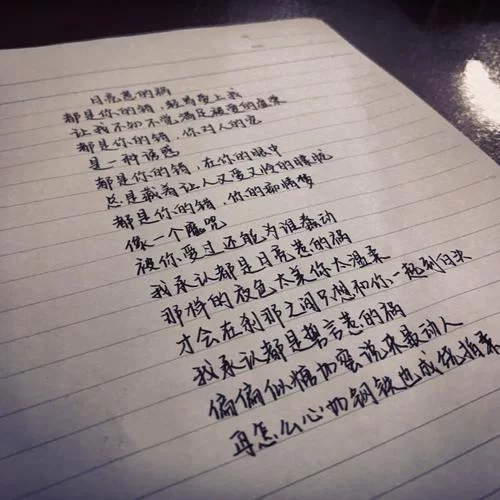 月亮惹的祸
都是你的错，轻易爱上我
让我不知不觉满足被爱的虚荣
都是你的错，你对人的宠
是一种诱惑
都是你的错，在你的眼中
总是藏着让人又爱又怜的朦胧
都是你的错，你的痴情梦
像一个魔咒
被你爱过还能为谁蠢动
我承认都是月亮惹的祸
那样的夜色太美你太温柔
才会在刹那之间只想和你一起到白头
我承认都是誓言惹的祸
偏偏似糖如蜜说来最动人
再怎么心如钢铁也成绕指柔